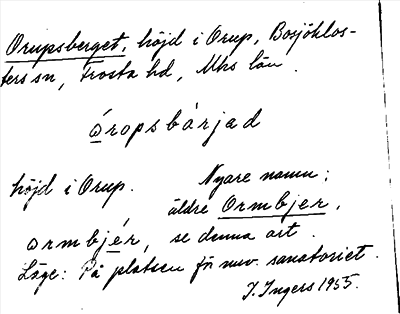 Orupsberget, höjd i Orup, Bosjöklos-
ters sn, Frosta hd, Mhs län.
òropsbárjad
höjd i Orup. Nyare namn;
äldre Ormbjer,
ormbjér, se denna art.
Läge: På platsen för nuv. sanatoriet.
I. Ingers 1955.